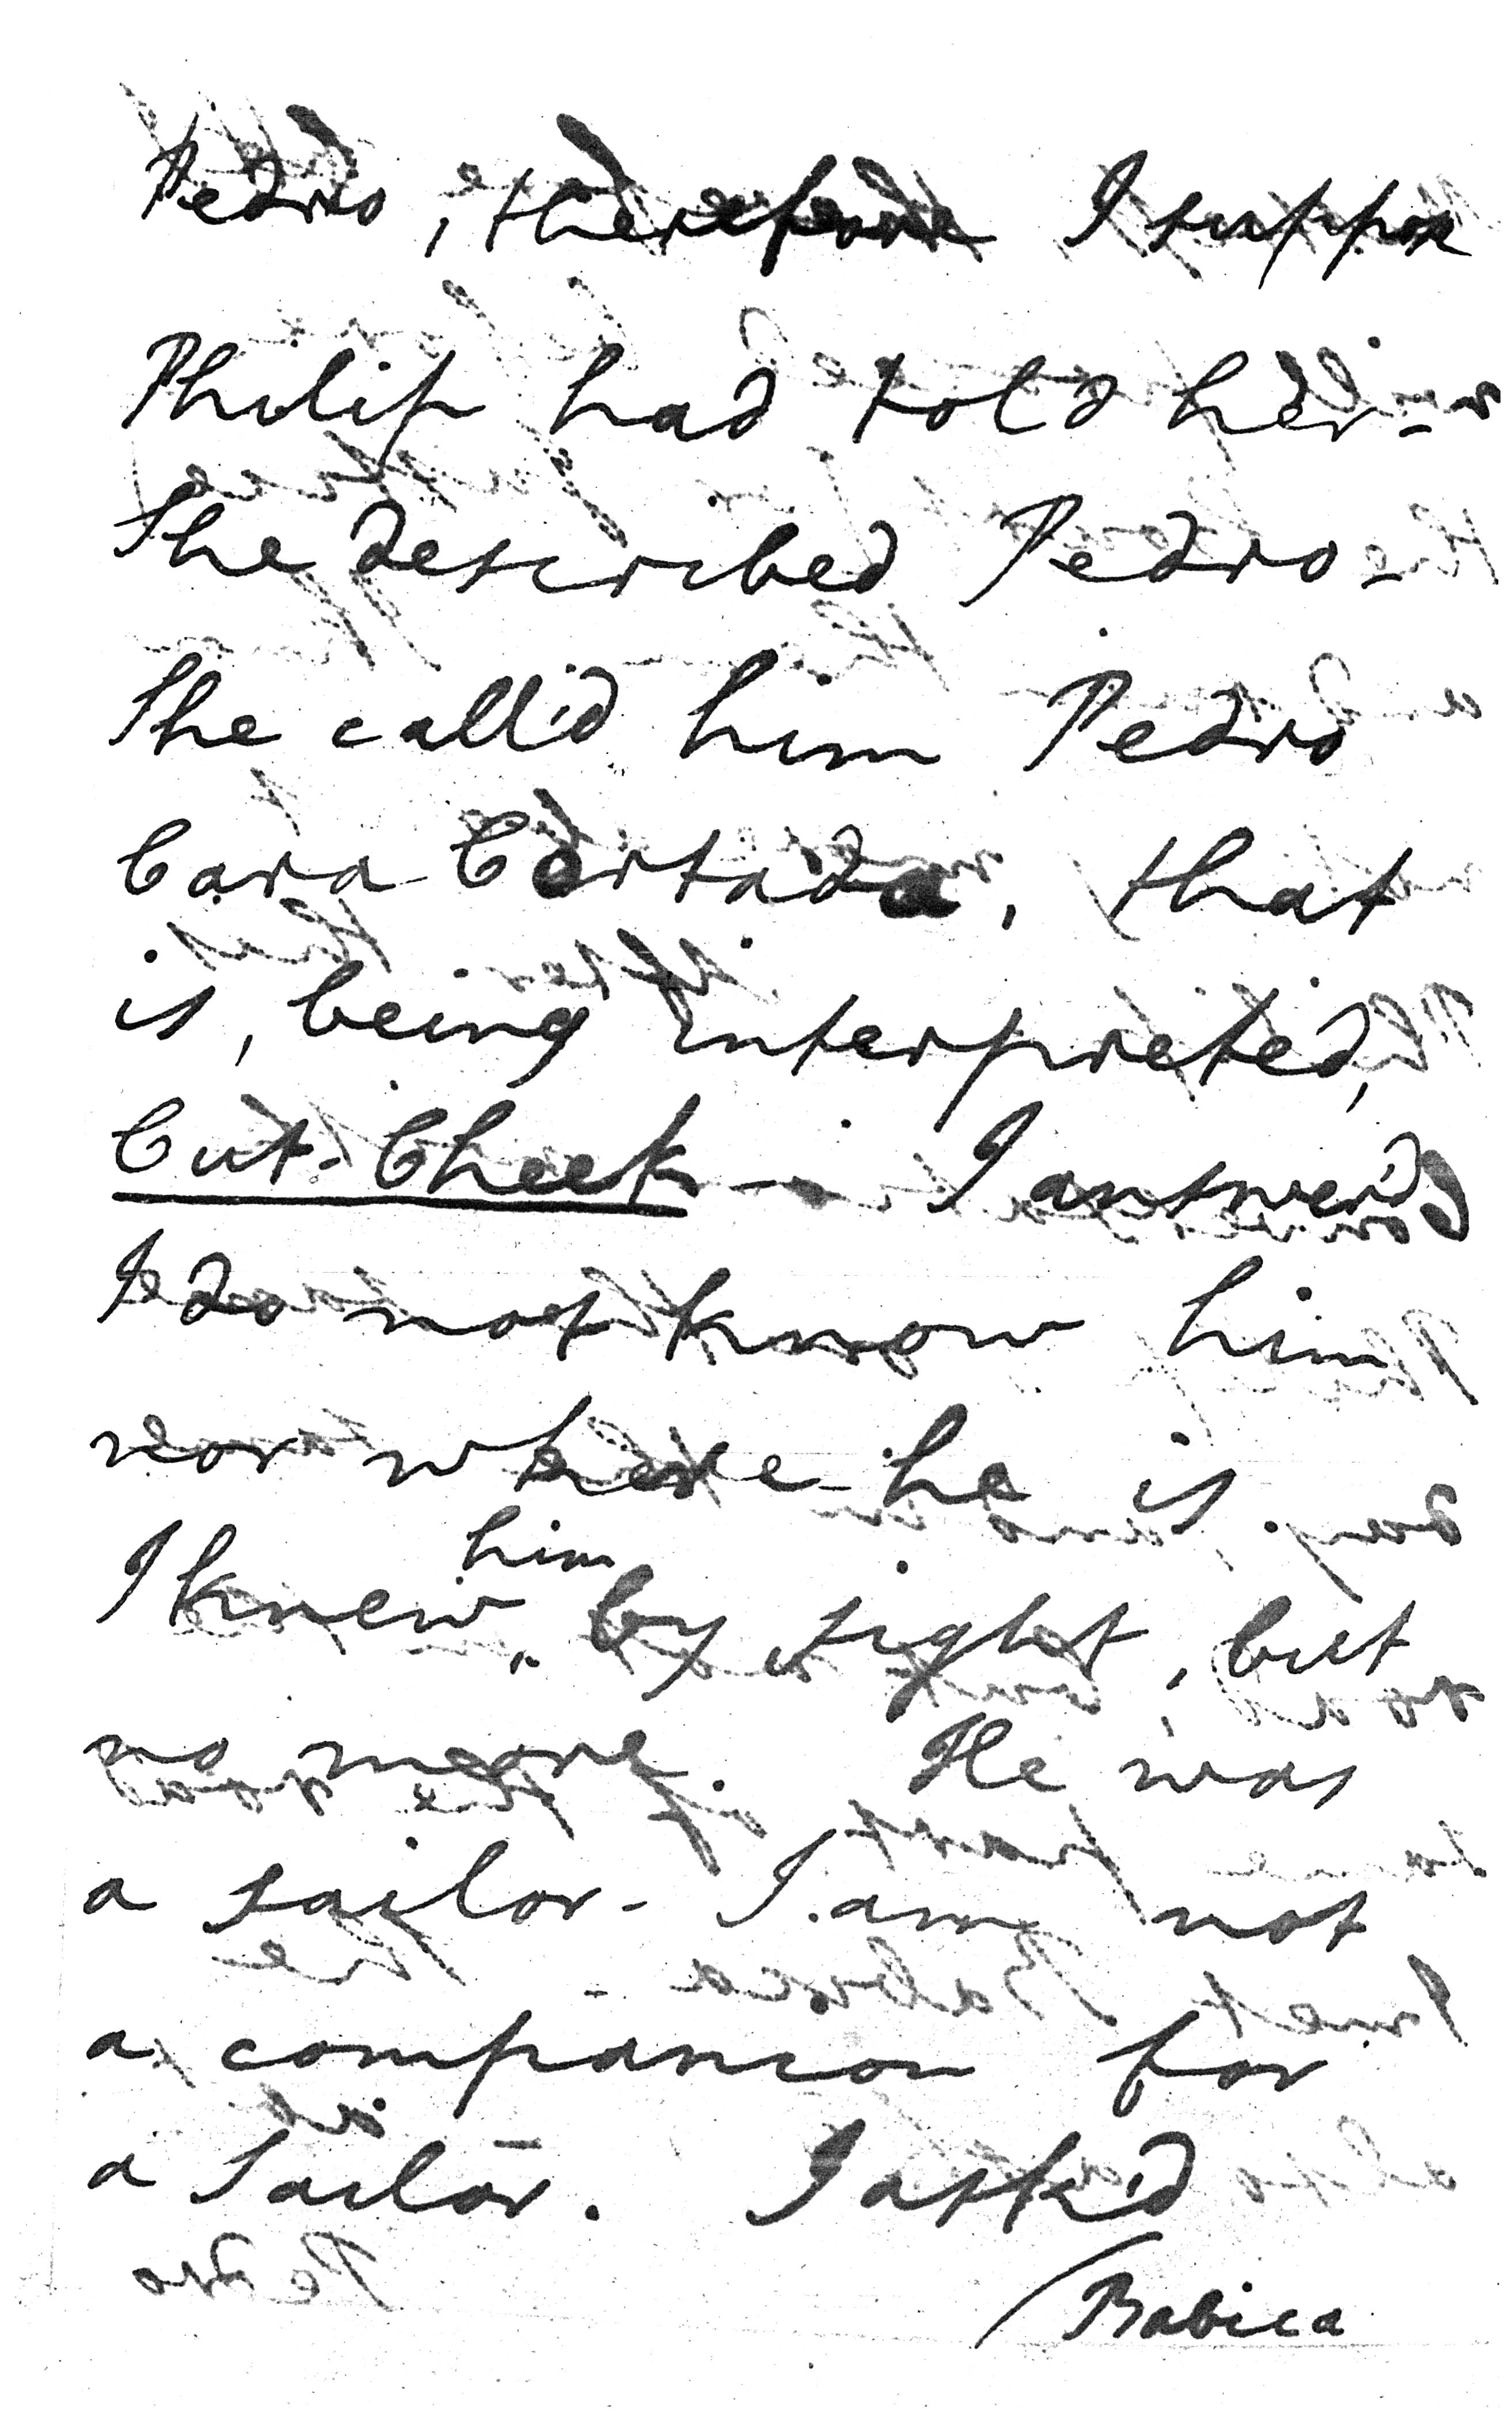 Pedro, therefore I suppose
Philip had told her -
She described Pedro -
She call'd him Pedro
Cara Cortada, that
is, being interpreted,
Cut-Cheek - I answer'd
I do not know him
nor where he is.
him
I knew ‸ by sight, but
no more. He was
a sailor - I am not
a companion for
a Sailor. I ask'd
Babica